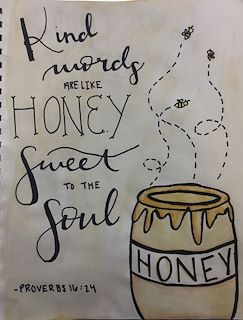 Kind
words
ARE LIKE
HONEY
Sweet
TO THE
Soul
-PROVERBS 16:24
HONEY